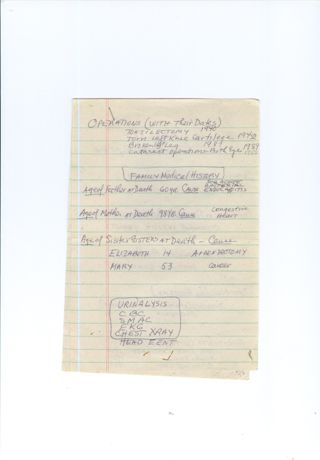 OPERATIONS (WITH Their Dates)
TONSILECTOMY 1940
Torn Left Knee Cartilege 1940
Broken Leg 1987
Cataract operations Both Eye 1989
FAMILY Medical HISTORY
Age of Father at Death 60 yr Cause
Age of Mother at Death 98 YR Cause Congestive Heart
Age of Sisters AT Death - Cause
ELIZABETH 14 APPENDECTOMY
MARY 53 CANCER
URINALYSIS
CBC
SMAC
EKG
CHEST XRAY
HEAD EENT